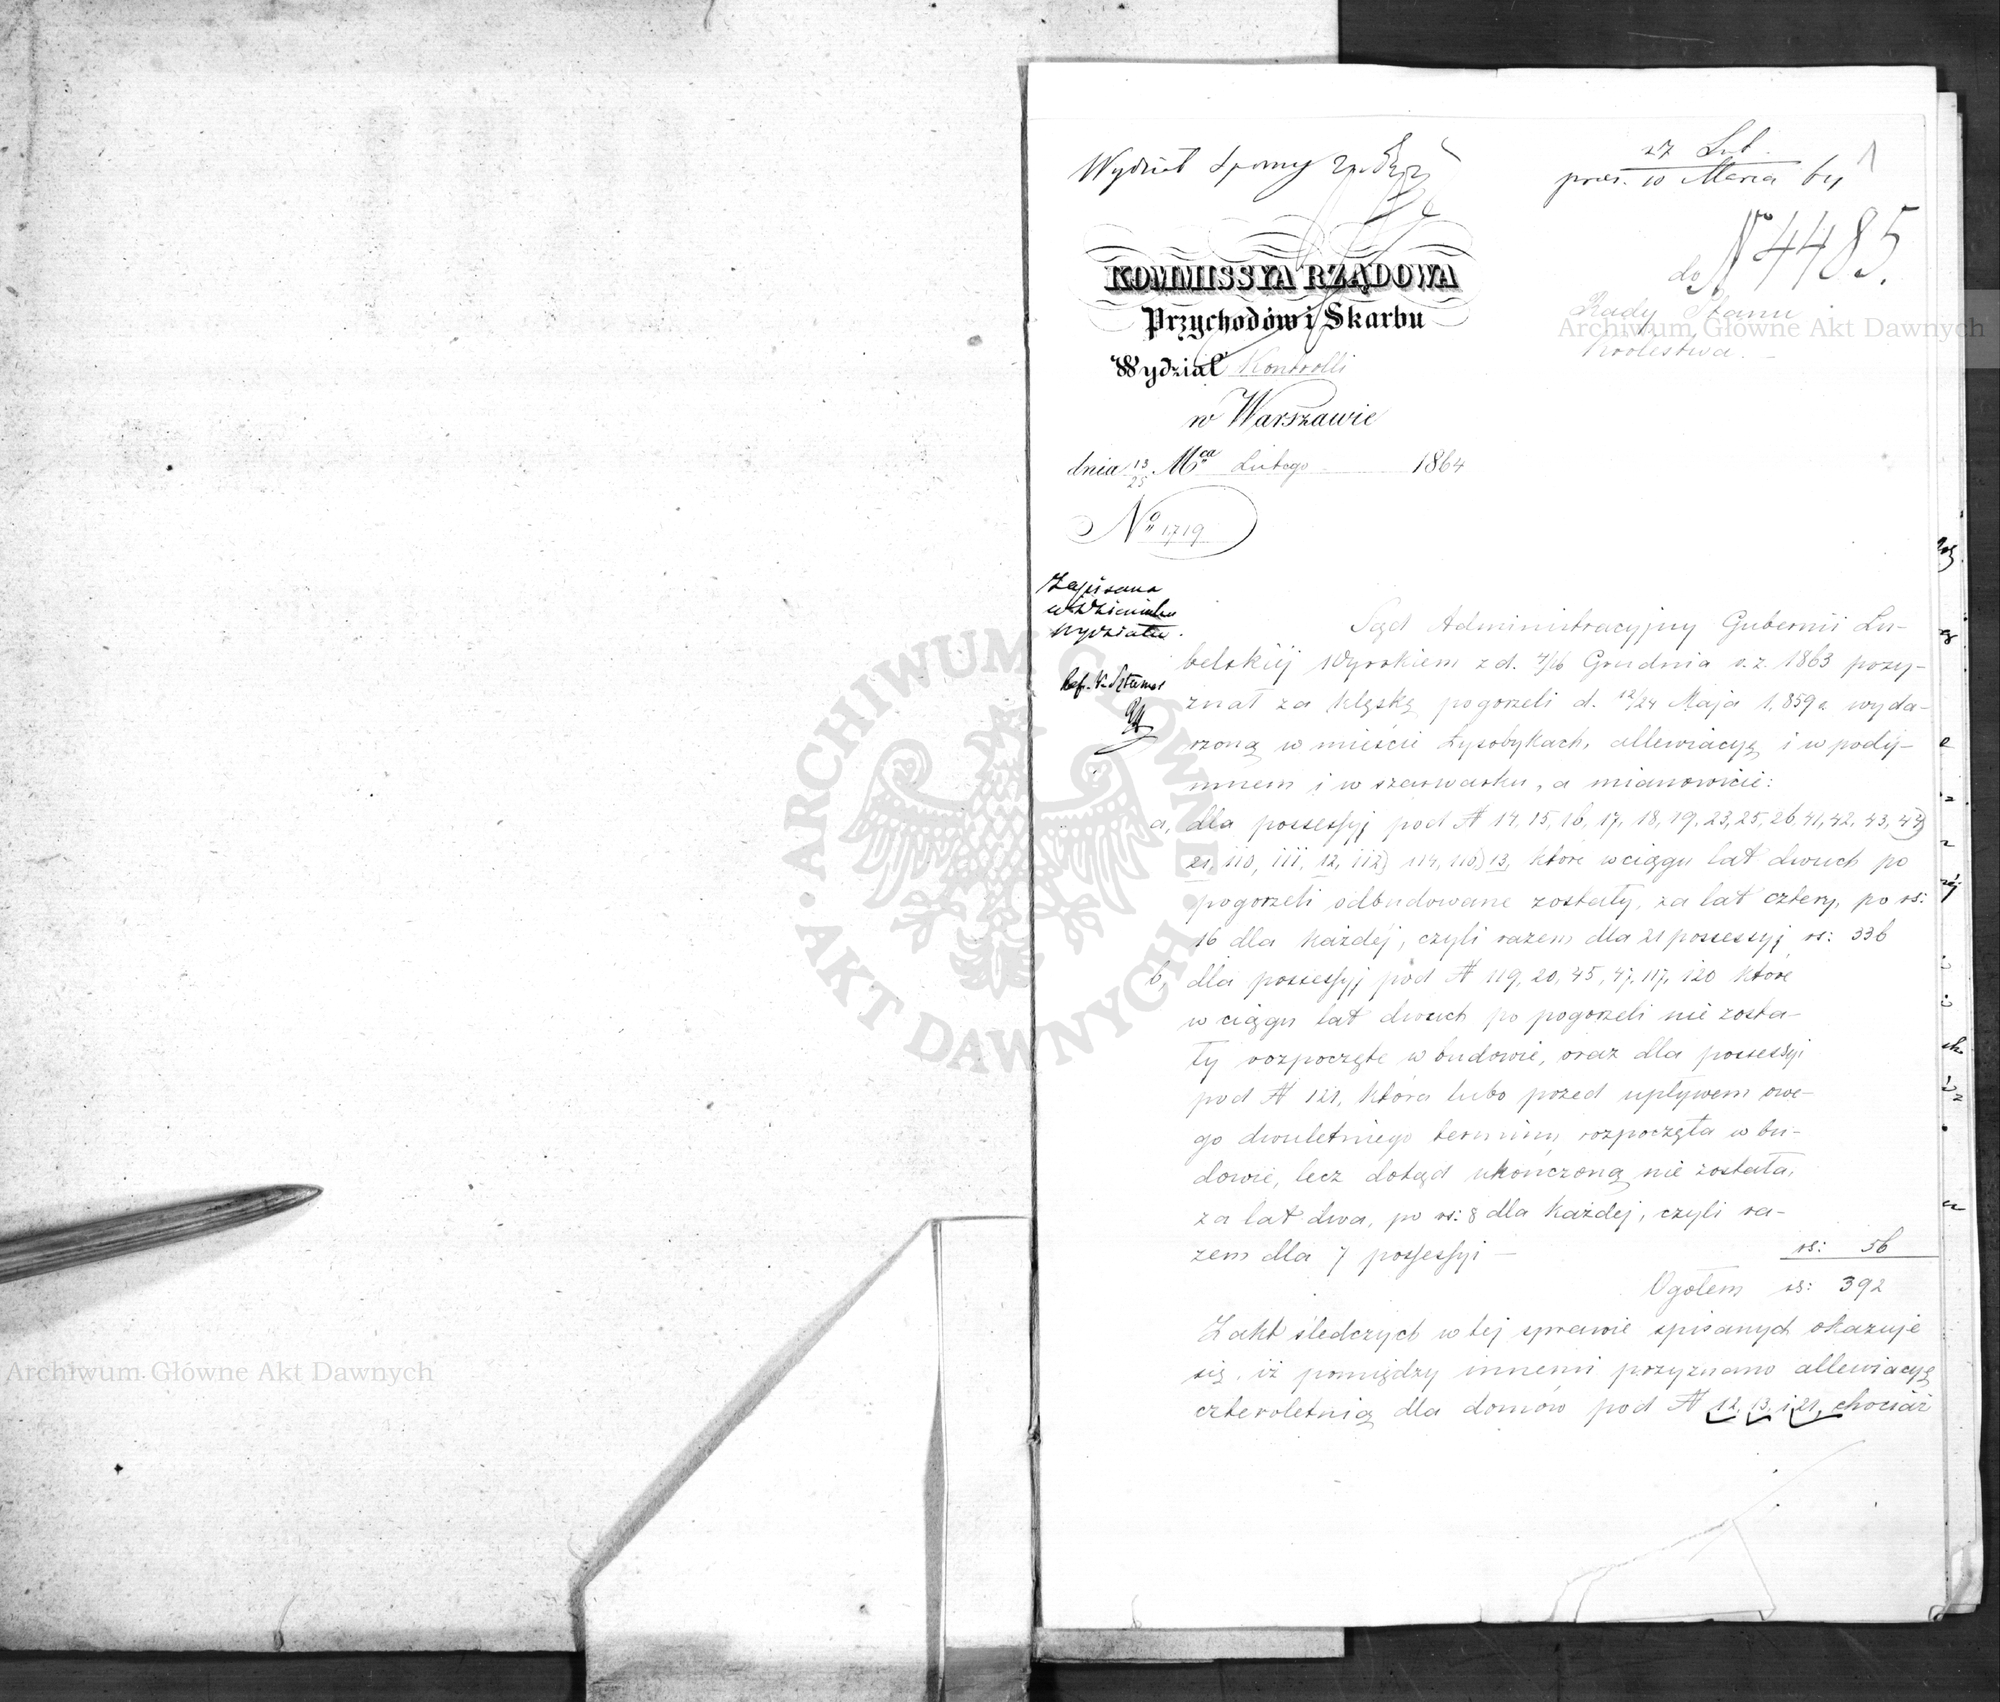 Wydział Sporny
27 Lut.
prez. 10 Marca 64
1
N 4485.
KOMMISSYA RZĄDOWA
Przychodów i Skarbu
Wydział Kontrolli
w Warszawie
dnia 13/25 Mca Lutego 1864
No 1719
do
Rady Stanu
Królestwa.
Zapisana
w Dzienniku
Wydziału.
Ref.
Sąd Administracyjny Gubernii Lu-
belskiéj Wyrokiem z d. 4/16 Grudnia r. z. 1863 przy-
znał za klęskę pogorzeli d. 12/24 Maja 1859 r. wyda-
rzoną w mieście Łysobykach, allewiacyą i w pody-
mnem i w szarwarku, a mianowicie:
a, dla possessyj pod № 14, 15, 16, 17, 18, 19, 23, 25, 26, 41, 42, 43, 43)
21, 110, 111, 12, 112) 114, 116) 13, które w ciągu lat dwuch po
pogorzeli odbudowane zostały, za lat cztery, po rs:
16 dla każdéj, czyli razem dla 21 possessyj rs: 336
b, dla possessyj pod № 119, 20, 45, 47, 117, 120 które
w ciągu lat dwuch po pogorzeli nie zosta-
ły rozpoczęte w budowie, oraz dla possessyi
pod № 121, która lubo przed upływem owe-
go dwuletniego terminu rozpoczęta w bu-
dowie, lecz dotąd ukończoną nie została,
za lat dwa, po rs: 8 dla każdéj, czyli ra-
zem dla 7 possessyi — rs: 56
Ogółem rs: 392
Z akt śledczych w tej sprawie spisanych okazuje
się, iż pomiędzy innemi przyznano allewiacyą
czteroletnią dla domów pod № 12, 13, i 21, chociaż
Archiwum Główne Akt Dawnych
Archiwum Główne Akt Dawnych
ARCHIWUM GŁÓWNE AKT DAWNYCH